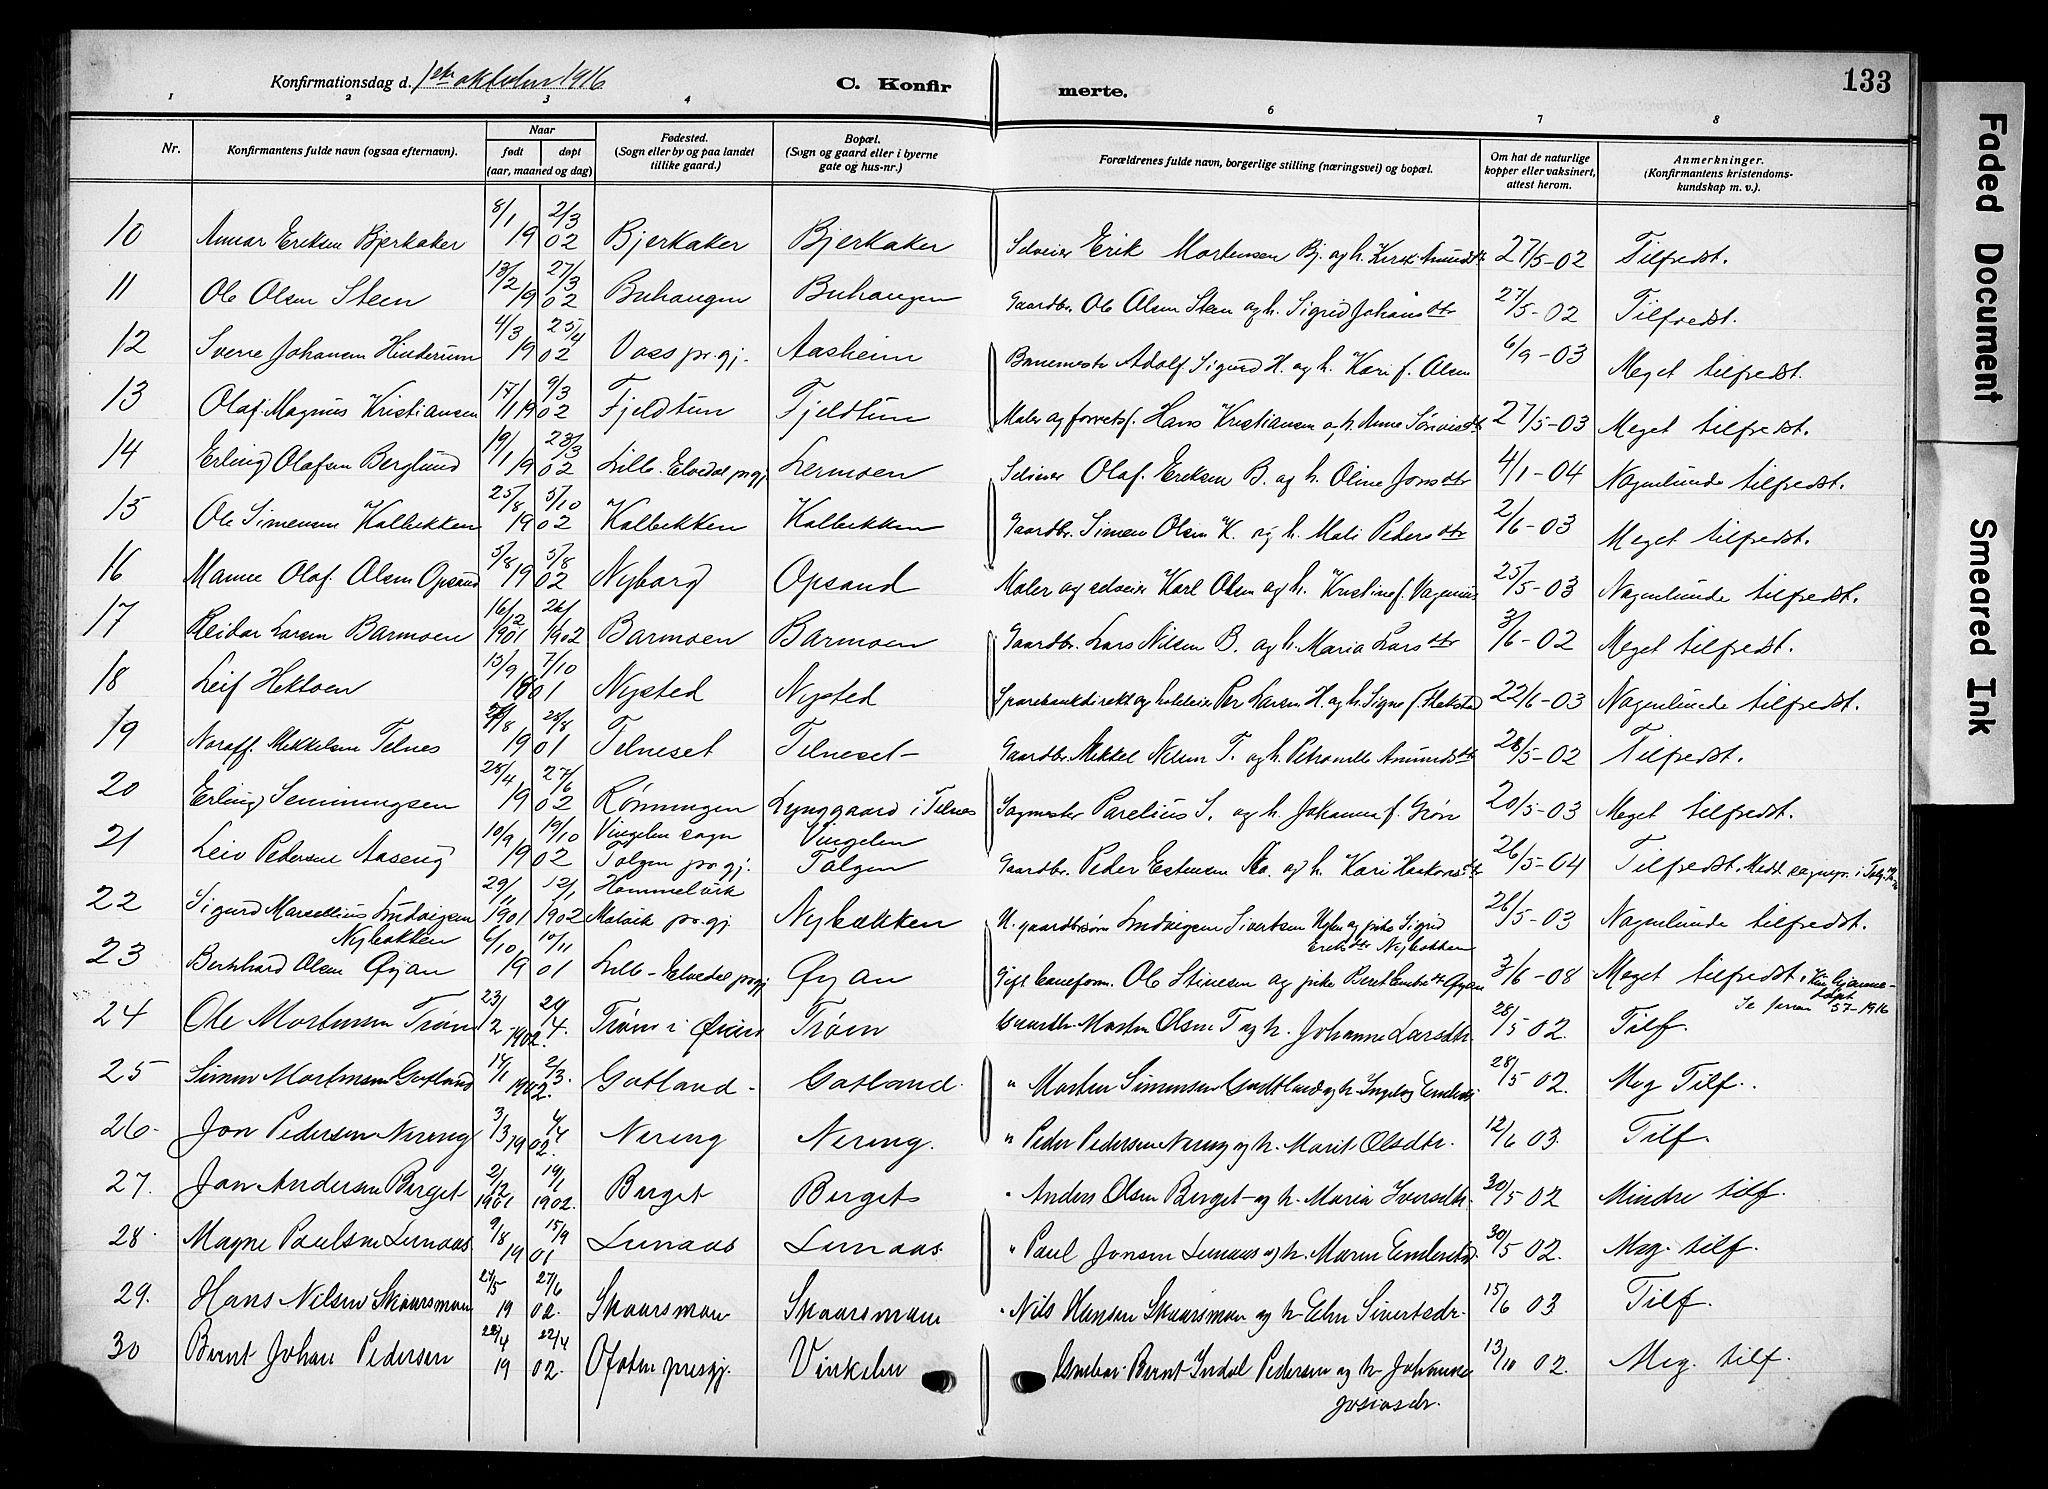 Konfirmationsdag d. 1ste oktober 1916
C. Konfirmerte.
133
1 2 3 4 5 6 7 8
Nr. Konfirmantens fulde navn (ogsaa efternavn). Naar født døpt (aar, maaned og dag) Fødested. (Sogn eller by og paa landet tillike gaard.) Bopæl. (Sogn og gaard eller i byerne gate og hus-nr.) Forældrenes fulde navn, borgerlige stilling (næringsvei) og bopæl. Om hat de naturlige kopper eller vaksinert, attest herom. Anmerkninger. (Konfirmantens kristendomskundskap m. v.).
10 Eriksen Bjerkaker 8/1 2/3 1902 Bjerkaker Bjerkaker Selveier Erik Mortensen Bj. og h. Amundsdtr 27/5-02 Tilfredst.
11 Ole Olsen Steen 13/2 27/3 1902 Buhaugen Buhaugen Gaardbr. Ole Olsen Steen og h. Sigrid Johansdtr 27/5-02 Tilfredst.
12 Sverre Johansen Hinderum 4/3 25/4 1902 Voss pr.gj. Aasheim Banemester Adolf Sigurd H. og h. Kari f. Olsen 6/9-03 Meget tilfredst.
13 Olaf Magnus Kristiansen 17/1 9/3 1902 Fjeldtun Fjeldtun Maler og forretsf. Hans Kristiansen og h. Anne 27/5-03 Meget tilfredst.
14 Erling Olafsen Berglund 19/1 23/3 1902 Lille-Elvedal pr.gj. Lermoen Selveier Olaf Eriksen B. og h. Oline Jonsdtr 4/1-04 Nogenlunde tilfredst.
15 Ole Simensen Kalbekken 25/8 5/10 1902 Kalbekken Kalbekken Gaardbr. Simen Olsen K. og h. Mali Pedersdtr 2/6-03 Meget tilfredst.
16 Olaf Olsen Opsand 5/8 5/8 1902 Nyborg Opsand Maler og selveier Karl Olsen og h. Kristine f. 25/5-03 Nogenlunde tilfredst.
17 Reidar Larsen Barmoen 16/12 1901 26/1 1902 Barmoen Barmoen Gaardbr. Lars Nilsen B. og h. Maria Larsdtr 3/6-02 Meget tilfredst.
18 Leif Hektoen 15/9 7/10 1901 Nysted Nysted Sparebankdirekt og hoteleier Per Larsen H. og h. Signe f. 22/6-03 Nogenlunde tilfredst.
19 Mikkelsen Telnes 28/8 1901 Telneset Telneset Gaardbr. Mikkel Nilsen T. og h. Petronille Amundsdtr 28/5-02 Tilfredst.
20 Erling Semmingsen 28/4 27/6 1902 Rønningen Lynggaard i Telnes Sagmester Parelius S. og h. Johanna f. Grøn 20/5-03 Meget tilfredst.
21 Leiv Pedersen Aaseng 10/9 19/10 1902 Vingelen sogn Tolgen pr.gj. Vingelen Tolgen Gaardbr. Peder Estensen Aa. og h. Kari 26/5-04 Tilfredst.
22 Sigurd Marcellius Ludvigsen Nybakken 29/11 1901 12/1 1902 Hommelvik Malvik pr.gj. Nybækken U. gaardbrsøn Ludvigsen Sivertsen og pike Sigrid Eriksdtr Nybakken 26/5-03 Nogenlunde tilfredst.
23 Bernhard Olsen Øyan 6/10 10/11 1901 Lille-Elvedal pr.gj. Øyan Gift Ole Stinesen og pike Beret Øyan 3/6-08 Meget tilfredst.
24 Ole Mortensen Trøen 23/2 20/4 1902. Trøen i Trøen Gaardbr. Morten Olsen T. og h. Johanne Larsdtr. 28/5 02. Tilf.
25 Simen Mortensen Gotland 14/1 2/3 1902. Gotland Gotland " Morten Simensen og h. Ingeborg 28/5 02. Meg Tilf.
26 Jon Pedersen Nereng 3/3 6/4 1902. Nereng Nereng. " Peder Pedersen Nereng og h. Marit Olsdtr. 12/6 03. Tilf.
27. Jon Andersen Berget 2/12 1901 19/1 1902. Berget Bergets " Anders Olsen Berget og h. Maria Iversdtr 30/5 02 Mindre tilf.
28. Magne Paulsen Lunaas 9/8 15/9 1901 Lunaas Lunaas " Paul Jonsen Lunaas og h. Maren 30/5 02. Meg. tilf.
29. Hans Nilsen Skaarsmoen 27/5 27/6 1902. Skaarsmoen Skaarsmoen " Nils Hansen Skaarsmoen og h. Sivertsdr. 15/6 03 Tilf.
30 Bernt Johan Pedersen 22/4 22/4 1902. Ofoten presgj. Vinkelen Bernt Indal Pedersen og h. Johanne Josiasdr. 13/10 02. Meg. tilf.
Faded Document Smeared Ink